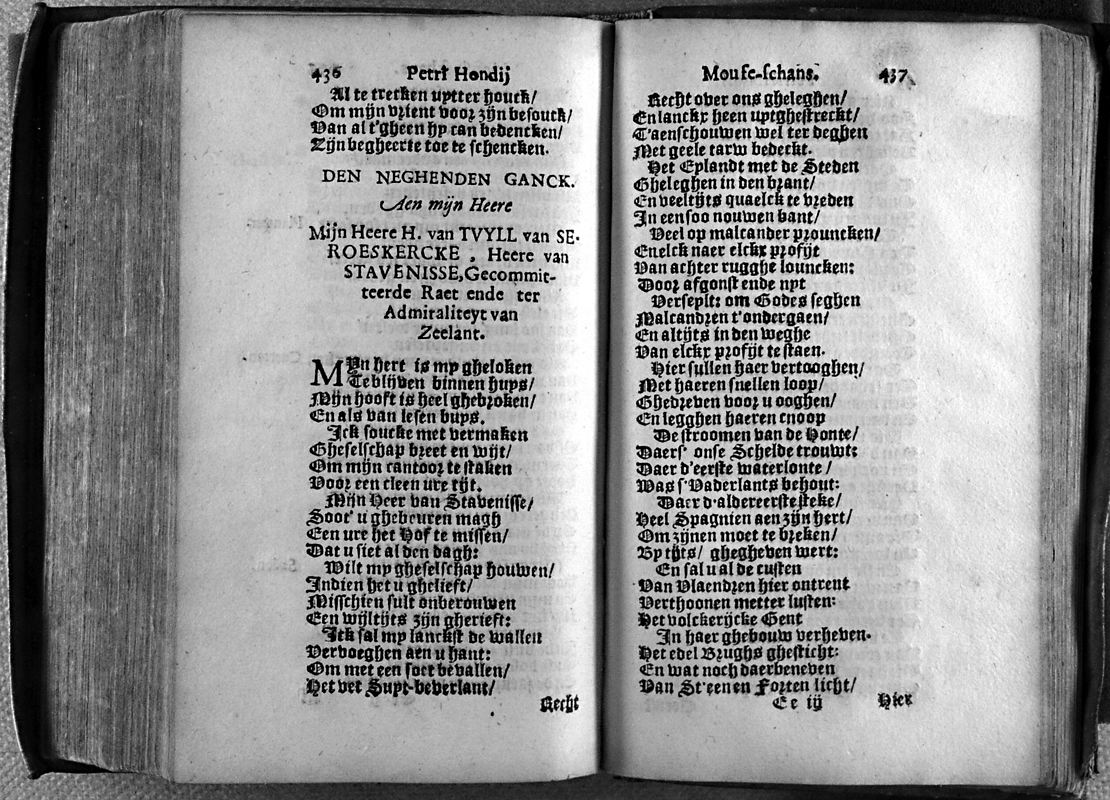 436 Petri Hondij
Al te trecken uytter houck/
Om mijn vrient voor zijn besouck/
Van al t'gheen hy can bedencken/
Zijn begheerte toe te schencken.
DEN NEGHENDEN GANCK.
Aen mijn Heere
Mijn Heere H. van TVYLL van SE-
ROESKERCKE, Heere van
STAVENISSE, Gecommit-
teerde Raet ende ter
Admiraliteyt van
Zeelant.
MYn hert is my gheloken
Te blijven binnen huys/
Mijn hooft is heel ghebroken/
En als van lesen buys.
Ick soucke met vermaken
Gheselschap breet en wijt/
Om mijn cantoor te staken
Voor een cleen ure tijt.
Mijn Heer van Stavenisse/
Soot' u ghebeuren magh
Een ure het Hof te missen/
Dat u siet al den dagh:
Wilt my gheselschap houwen/
Indien het u ghelieft/
Misschien sult onberouwen
Een wijltijts zijn gherieft:
Ick sal my lanckst de wallen
Vervoeghen aen u hant:
Om met een soet bevallen/
Het vet Suyt-beverlant/
Recht
Mouse-schans. 437
Recht over ons gheleghen/
En lanckx heen uytghestreckt/
T'aenschouwen wel ter deghen
Met geele tarw bedeckt.
Het Eylandt met de Steden
Gheleghen in den brant/
En veeltijts quaelck te vreden
In een soo nouwen bant/
Veel op malcander prouncken/
En elck naer elckx profijt
Van achter rugghe louncken:
Door afgonst ende nyt
Verseylt: om Godes seghen
Malcandren t'ondergaen/
En altijts in den weghe
Van elckx profijt te staen.
Hier sullen haer vertooghen/
Met haeren snellen loop/
Ghedreven voor u ooghen/
En legghen haeren cnoop
De stroomen van de Honte/
Daers' onse Schelde trouwt:
Daer d'eerste waterlonte/
Was s'Vaderlants behout:
Daer d'aldereerste steke/
Heel Spagnien aen zijn hert/
Om zijnen moet te breken/
By tijts/ ghegheven wert:
En sal u al de custen
Van Vlaendren hier ontrent
Verthoonen metter lusten:
Het volckerijcke Gent
In haer ghebouw verheven.
Het edel Brughs ghesticht:
En wat noch daerbeneven
Van St'een en Forten licht/
Ee ij Hier